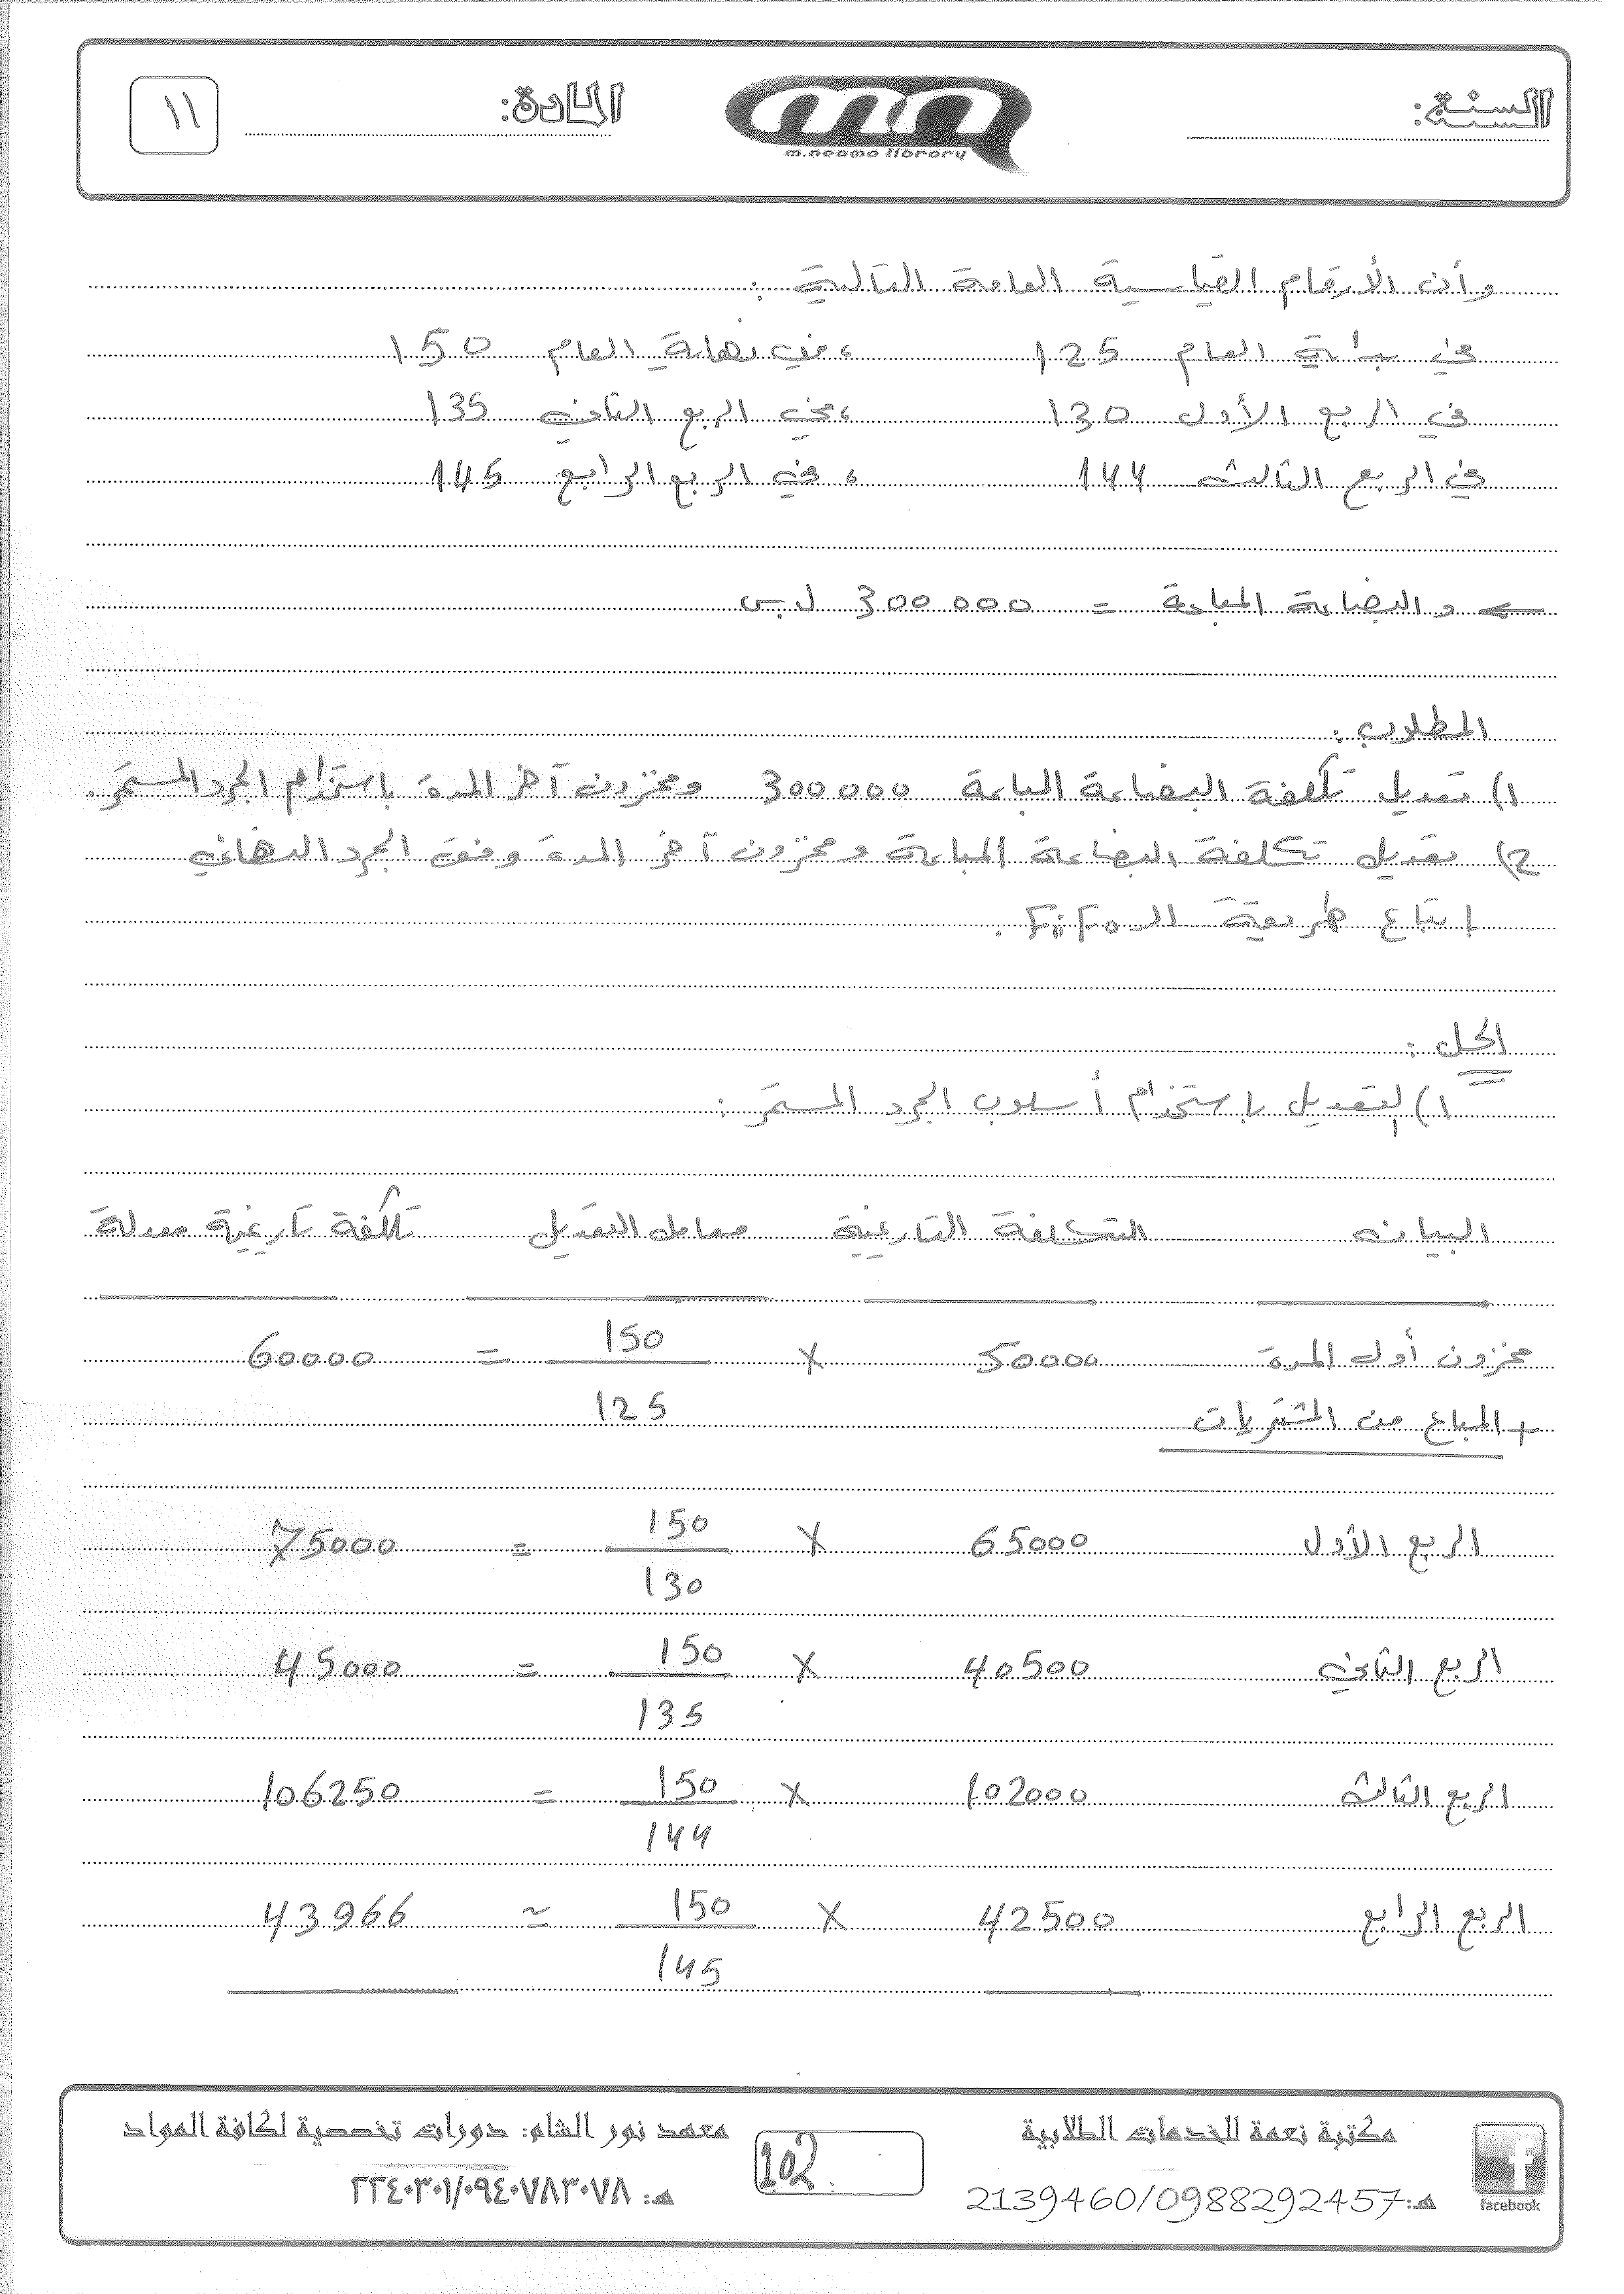 السنة: المادة: ١١
m.neama library
وأن الأرقام القياسية العامة التالية :
في بداية العام 125 ، في نهاية العام 150
في الربع الأول 130 ، في الربع الثاني 135
في الربع الثالث 144 ، في الربع الرابع 145
← و البضاعة المباعة = 300000 ل.س
المطلوب :
1) تعديل تكلفة البضاعة المباعة 300000 ومخزون آخر المدة باستخدام الجرد المستمر.
2) تعديل تكلفة البضاعة المباعة ومخزون آخر المدة وفق الجرد النهائي
إتباع طريقة الـ Fifo .
الحل :
1) التعديل باستخدام أسلوب الجرد المستمر :
البيان التكلفة التاريخية معامل التعديل تكلفة تاريخية معدلة
مخزون أول المدة 50000 × 150 = 60000
+ المباع من المشتريات 125
الربع الأول 65000 × 150 = 75000
130
الربع الثاني 40500 × 150 = 45000
135
الربع الثالث 102000 × 150 = 106250
144
الربع الرابع 42500 × 150 ≈ 43966
145
مكتبة نعمة للخدمات الطلابية 102 معهد نور الشام: دورات تخصصية لكافة المواد
هـ: 2139460/0988292457 هـ: ٢٢٤٠٣٠١/٠٩٤٠٧٨٣٠٧٨
facebook